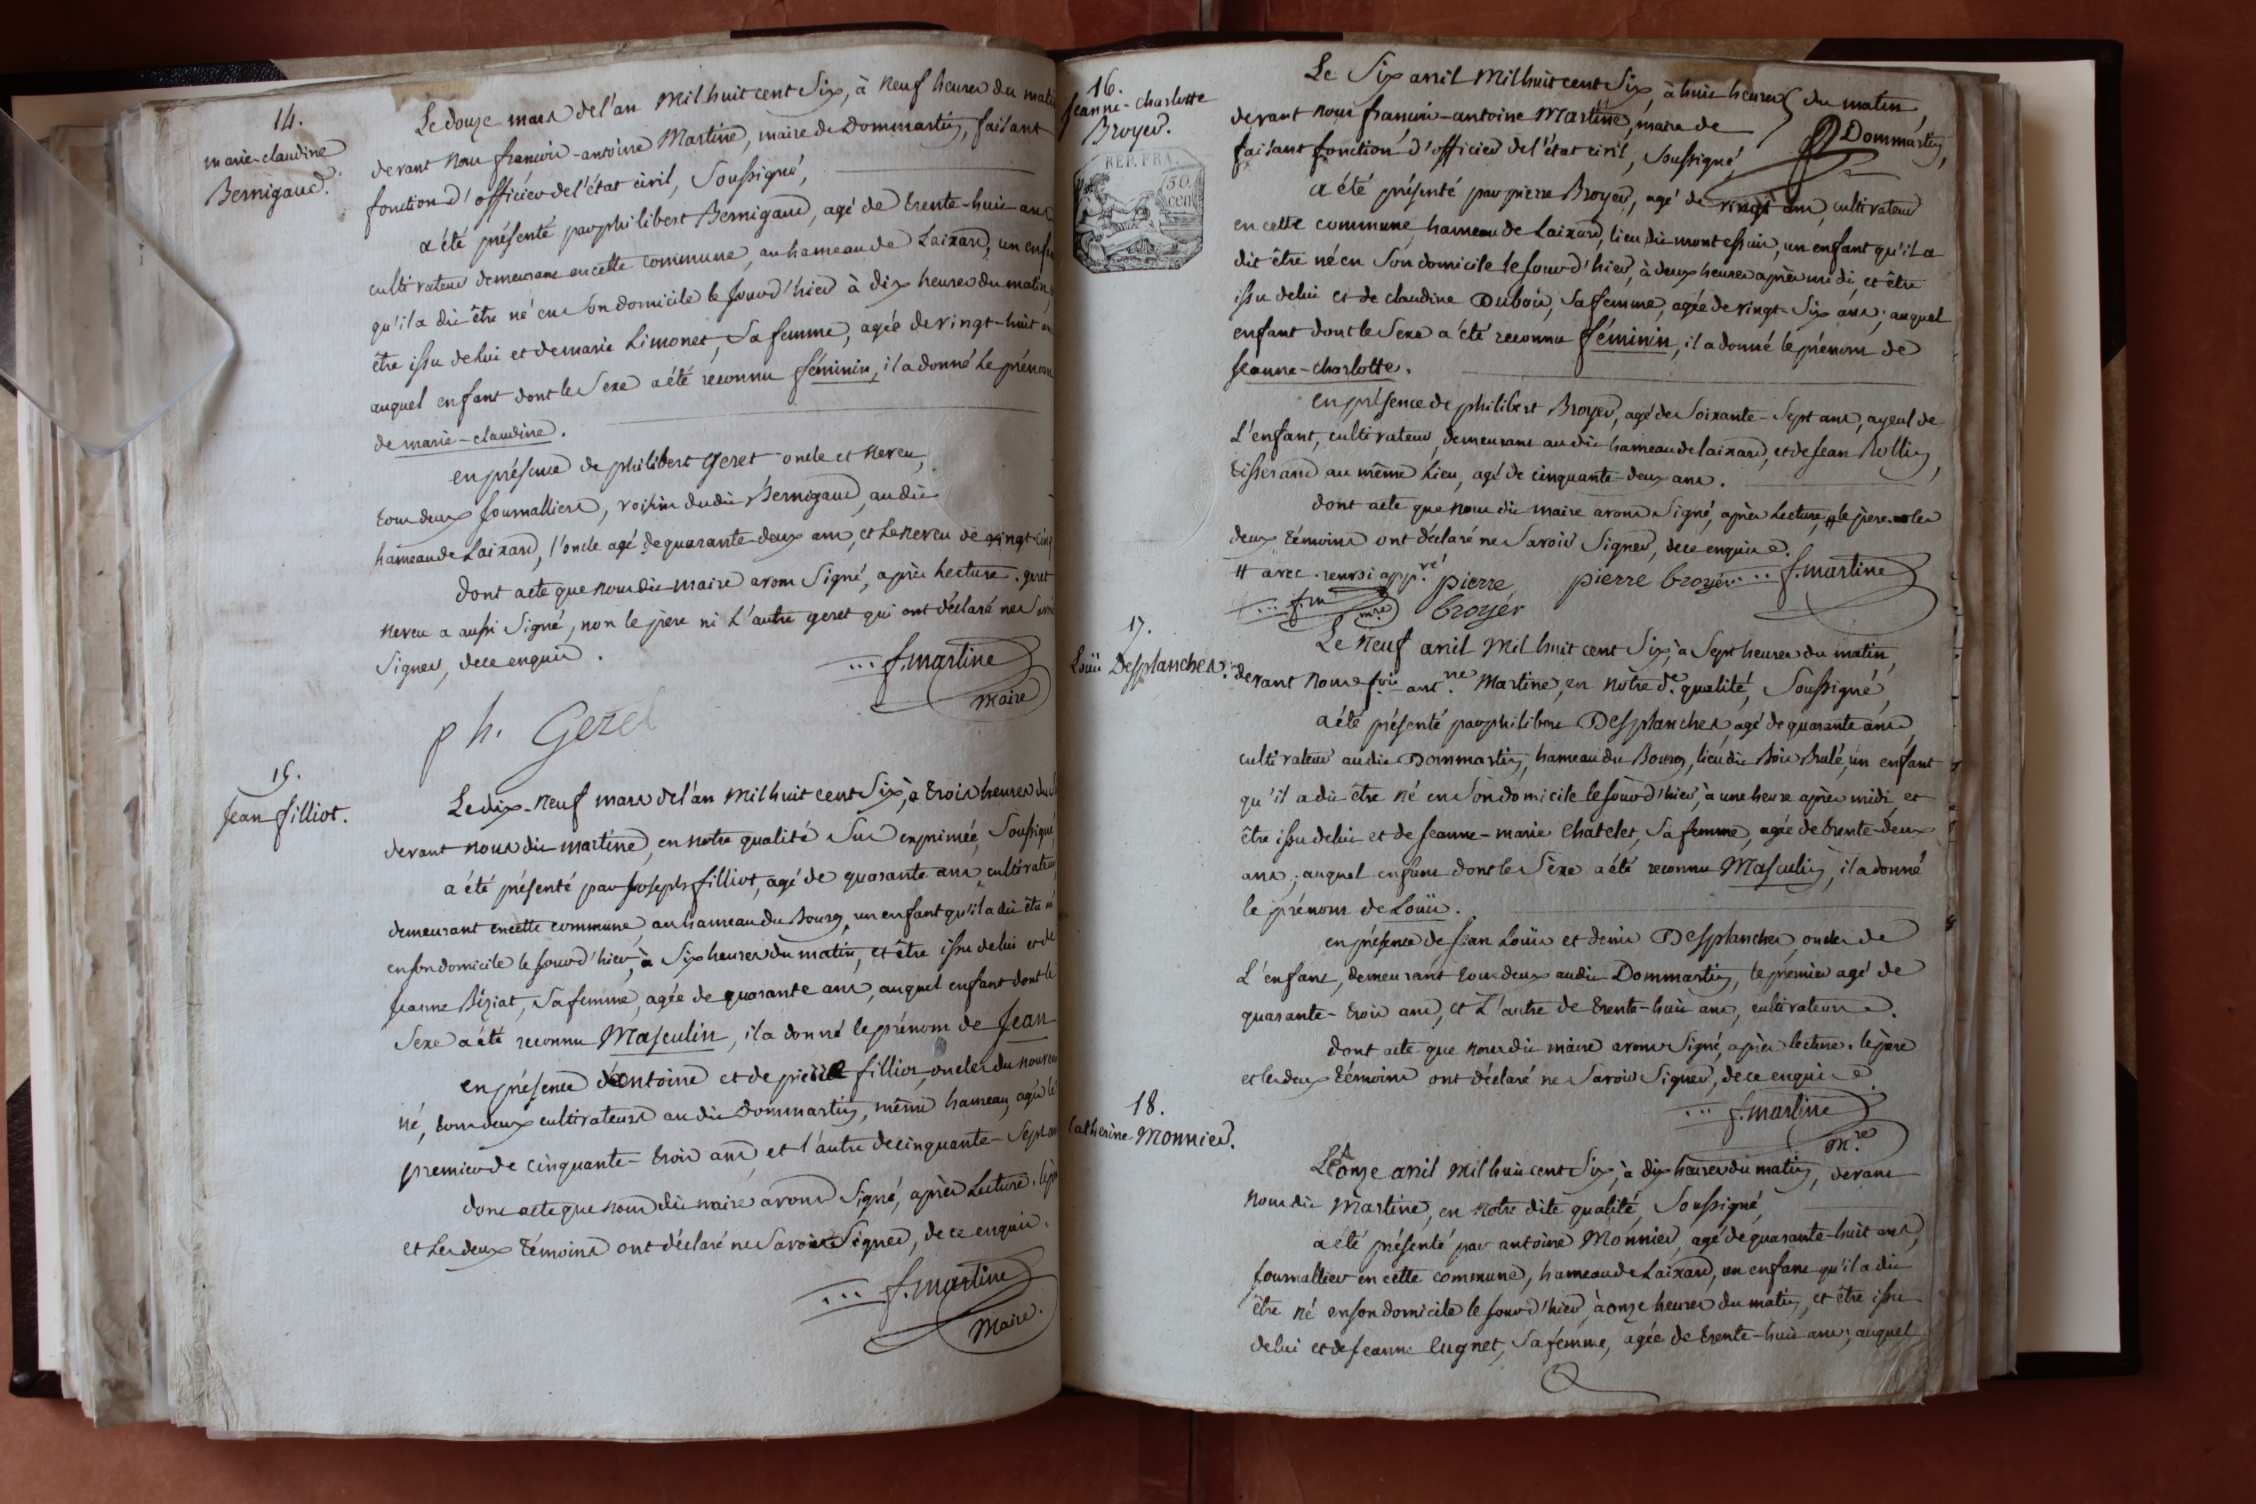 14.
marie-claudine
Bernigaud.
Le douze mars de l'an Mil huit cent Six, à neuf heures du matin
devant nous françois-antoine Martine, maire de Dommartin, faisant
fonction d'officier de l'état civil, Soussigné,
a été présenté par philibert Bernigaud, agé de trente-huit ans
cultivateur demeurant en cette commune, au hameau de Laizard, un enfant
qu'il a dit être né en son domicile le jour d'hier à dix heures du matin,
être issu de lui et de marie Limonet, sa femme, agée de vingt-huit ans
auquel enfant dont le Sexe a été reconnu féminin, il a donné le prénom
de marie-claudine.
en présence de philibert Geret oncle et neveu,
tous deux journalliers, voisins dudit Bernigaud, audit
hameau de Laizard, l'oncle agé de quarante-deux ans, et le neveu de vingt-cinq
dont acte que nous dit maire avons Signé, après Lecture. geret
neveu a aussi Signé, non le père ni L'autre geret qui ont déclaré ne Savoir
Signer, de ce enquis.
f. martine
maire
ph. Geret
15.
Jean filliot.
Le dix-neuf mars de l'an Mil huit cent Six, à trois heures du
devant nous dit martine, en notre qualité Sus exprimée, Soussigné,
a été présenté par Joseph filliot, agé de quarante ans, cultivateur,
demeurant en cette commune, au hameau du Bourg, un enfant qu'il a dit être né
en son domicile le jour d'hier, à Six heures du matin, et être issu de lui et de
Jeanne Béziat, Sa femme, agée de quarante ans, auquel enfant dont le
Sexe a été reconnu Masculin, il a donné le prénom de Jean
en présence d'antoine et de pierre filliot, oncles du nouveau
né, tous deux cultivateurs audit Dommartin, même hameau, agés le
premier de cinquante-trois ans et l'autre de cinquante-Sept ans
dont acte que nous dit maire avons Signé, après Lecture. le père
et Les deux témoins ont déclaré ne Savoir Signer, de ce enquis.
f. martine
Maire.
16.
Jeanne-charlotte
Broyer.
REP. FRA.
50
cen
Le Six avril Mil huit cent Six, à huit heures du matin,
devant nous françois-antoine Martine, maire de Dommartin,
faisant fonction d'officier de l'état civil, Soussigné,
a été présenté par pierre Broyer, agé de vingt ans cultivateur
en cette commune, hameau de Laizard, lieu dit montessuis, un enfant qu'il a
dit être né en Son domicile le jour d'hier, à deux heures après midi, et être
issu de lui et de claudine Dubois, Sa femme, agée de vingt-Six ans; auquel
enfant dont le Sexe a été reconnu féminin, il a donné le prénom de
Jeanne-charlotte.
en présence de philibert Broyer, agé de Soixante-Sept ans, ayeul de
L'enfant, cultivateur, demeurant audit hameau de laizard, et de Jean Rollin,
tisserand au même Lieu, agé de cinquante-deux ans.
dont acte que nous dit maire avons Signé, après Lecture, # le père les
deux témoins ont déclaré ne Savoir Signer, de ce enquis.
# avec. renvoi app.vé pierre pierre broyer f. martine
f.m mre broyer
17.
Louis Desplanches.
Le Neuf avril Mil huit cent Six, à Sept heures du matin,
devant nous f.ois ant.ne Martine, en notre d.e qualité, Soussigné,
a été présenté par philibert Desplanches agé de quarante ans,
cultivateur audit Dommartin, hameau du Bourg, lieu dit Bois Bralé, un enfant
qu'il a dit être né en Son domicile le jour d'hier, à une heure après midi, et
être issu de lui et de Jeanne-marie Chatelet, Sa femme, agée de trente-deux
ans; auquel enfant dont le Sèxe a été reconnu Masculin, il a donné
le prénom de Louis.
en présence de Jean Louis et denis Desplanches, oncles de
L'enfant, demeurant tous deux audit Dommartin, le premier agé de
quarante-trois ans, et L'autre de trente-huit ans, cultivateurs.
dont acte que nous dit maire avons Signé, après lecture. le père
et les deux témoins ont déclaré ne Savoir Signer, de ce enquis.
f. martine
m.re
18.
Catherine Monnier.
Le onze avril Mil huit cent Six, à dix heures du matin, devant
nous dit Martine, en notre dite qualité, Soussigné,
a été présenté par antoine Monnier, agé de quarante-huit ans,
journallier en cette commune, hameau de Laizard, un enfant qu'il a dit
être né en son domicile le jour d'hier, à onze heures du matin, et être issu
de lui et de Jeanne Cugnet, Sa femme, agée de trente-huit ans; auquel